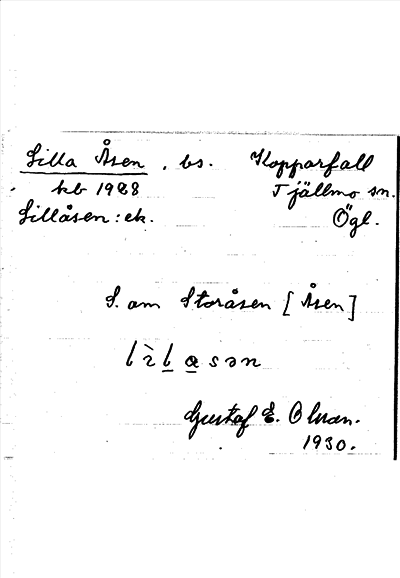 Lilla Åsen, bs. Kopparfall
kb 1928 Tjällmo sn.
Lillåsen: ek. Ögl.
S. om Storåsen [Åsen]
Gustaf E. Olsson.
1930.